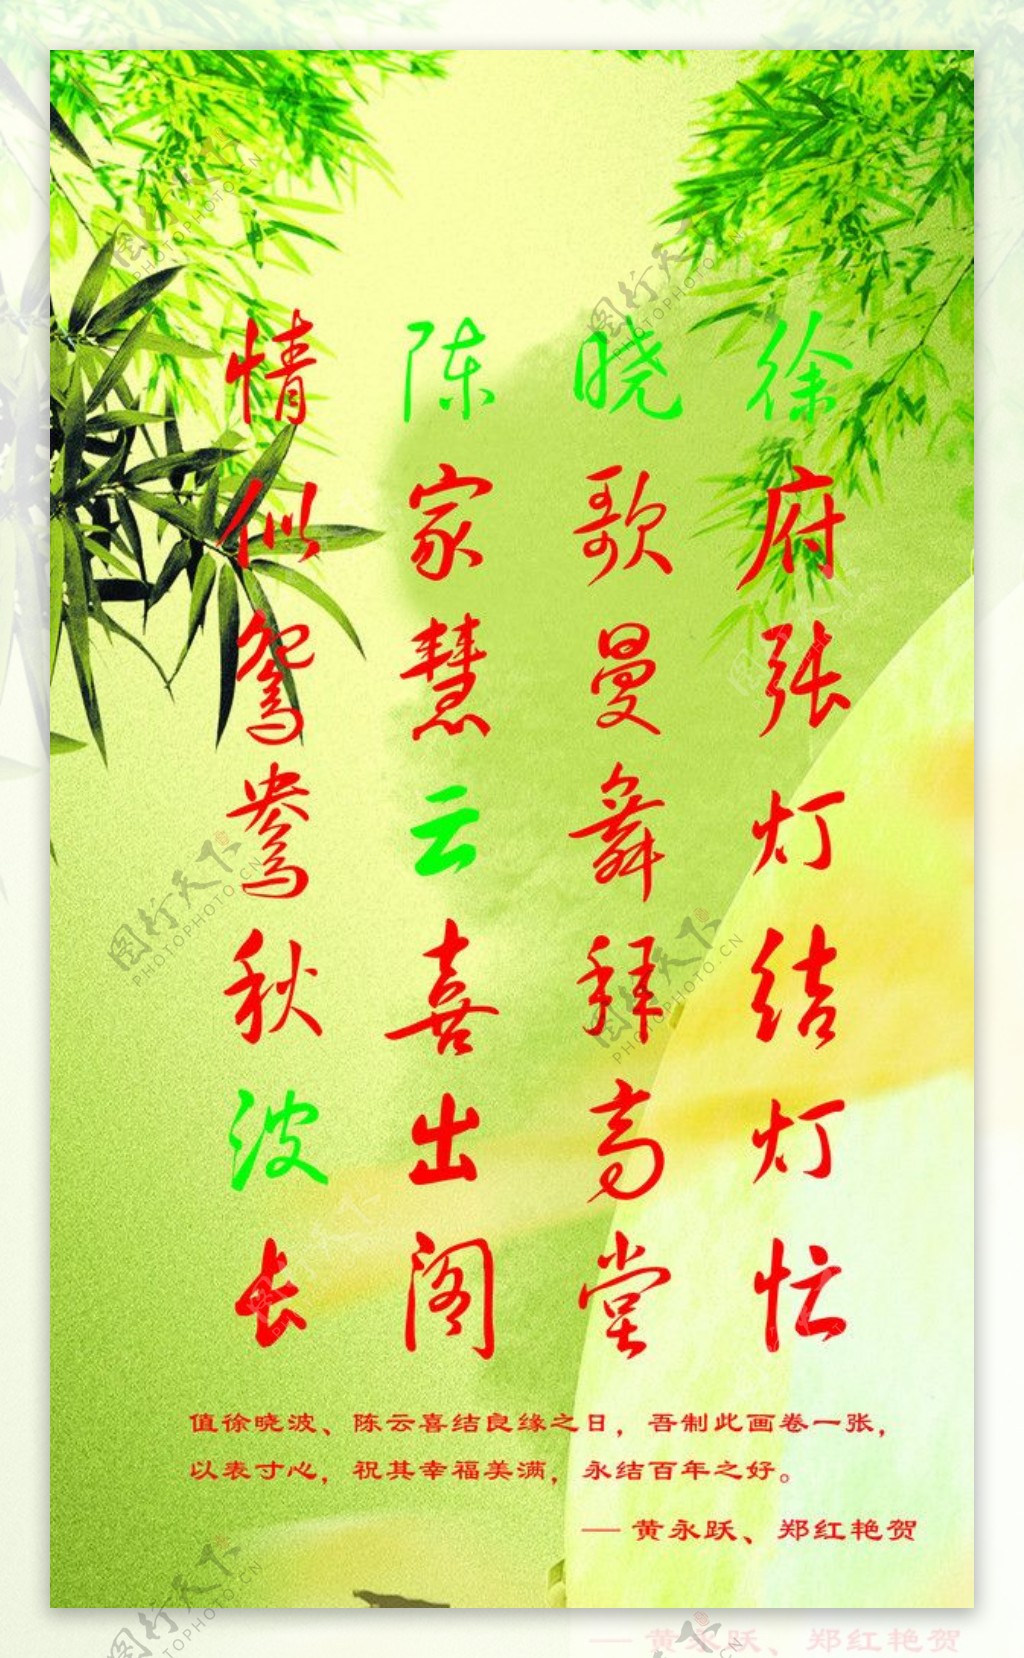 徐府张灯结灯忙
晓歌曼舞拜高堂
陈家慧云喜出阁
情似鸳鸯秋波长
值徐晓波、陈云喜结良缘之日，吾制此画卷一张，
以表寸心，祝其幸福美满，永结百年之好。
— 黄永跃、郑红艳贺
— 黄永跃、郑红艳贺
图行天下
PHOTOPHOTO.CN